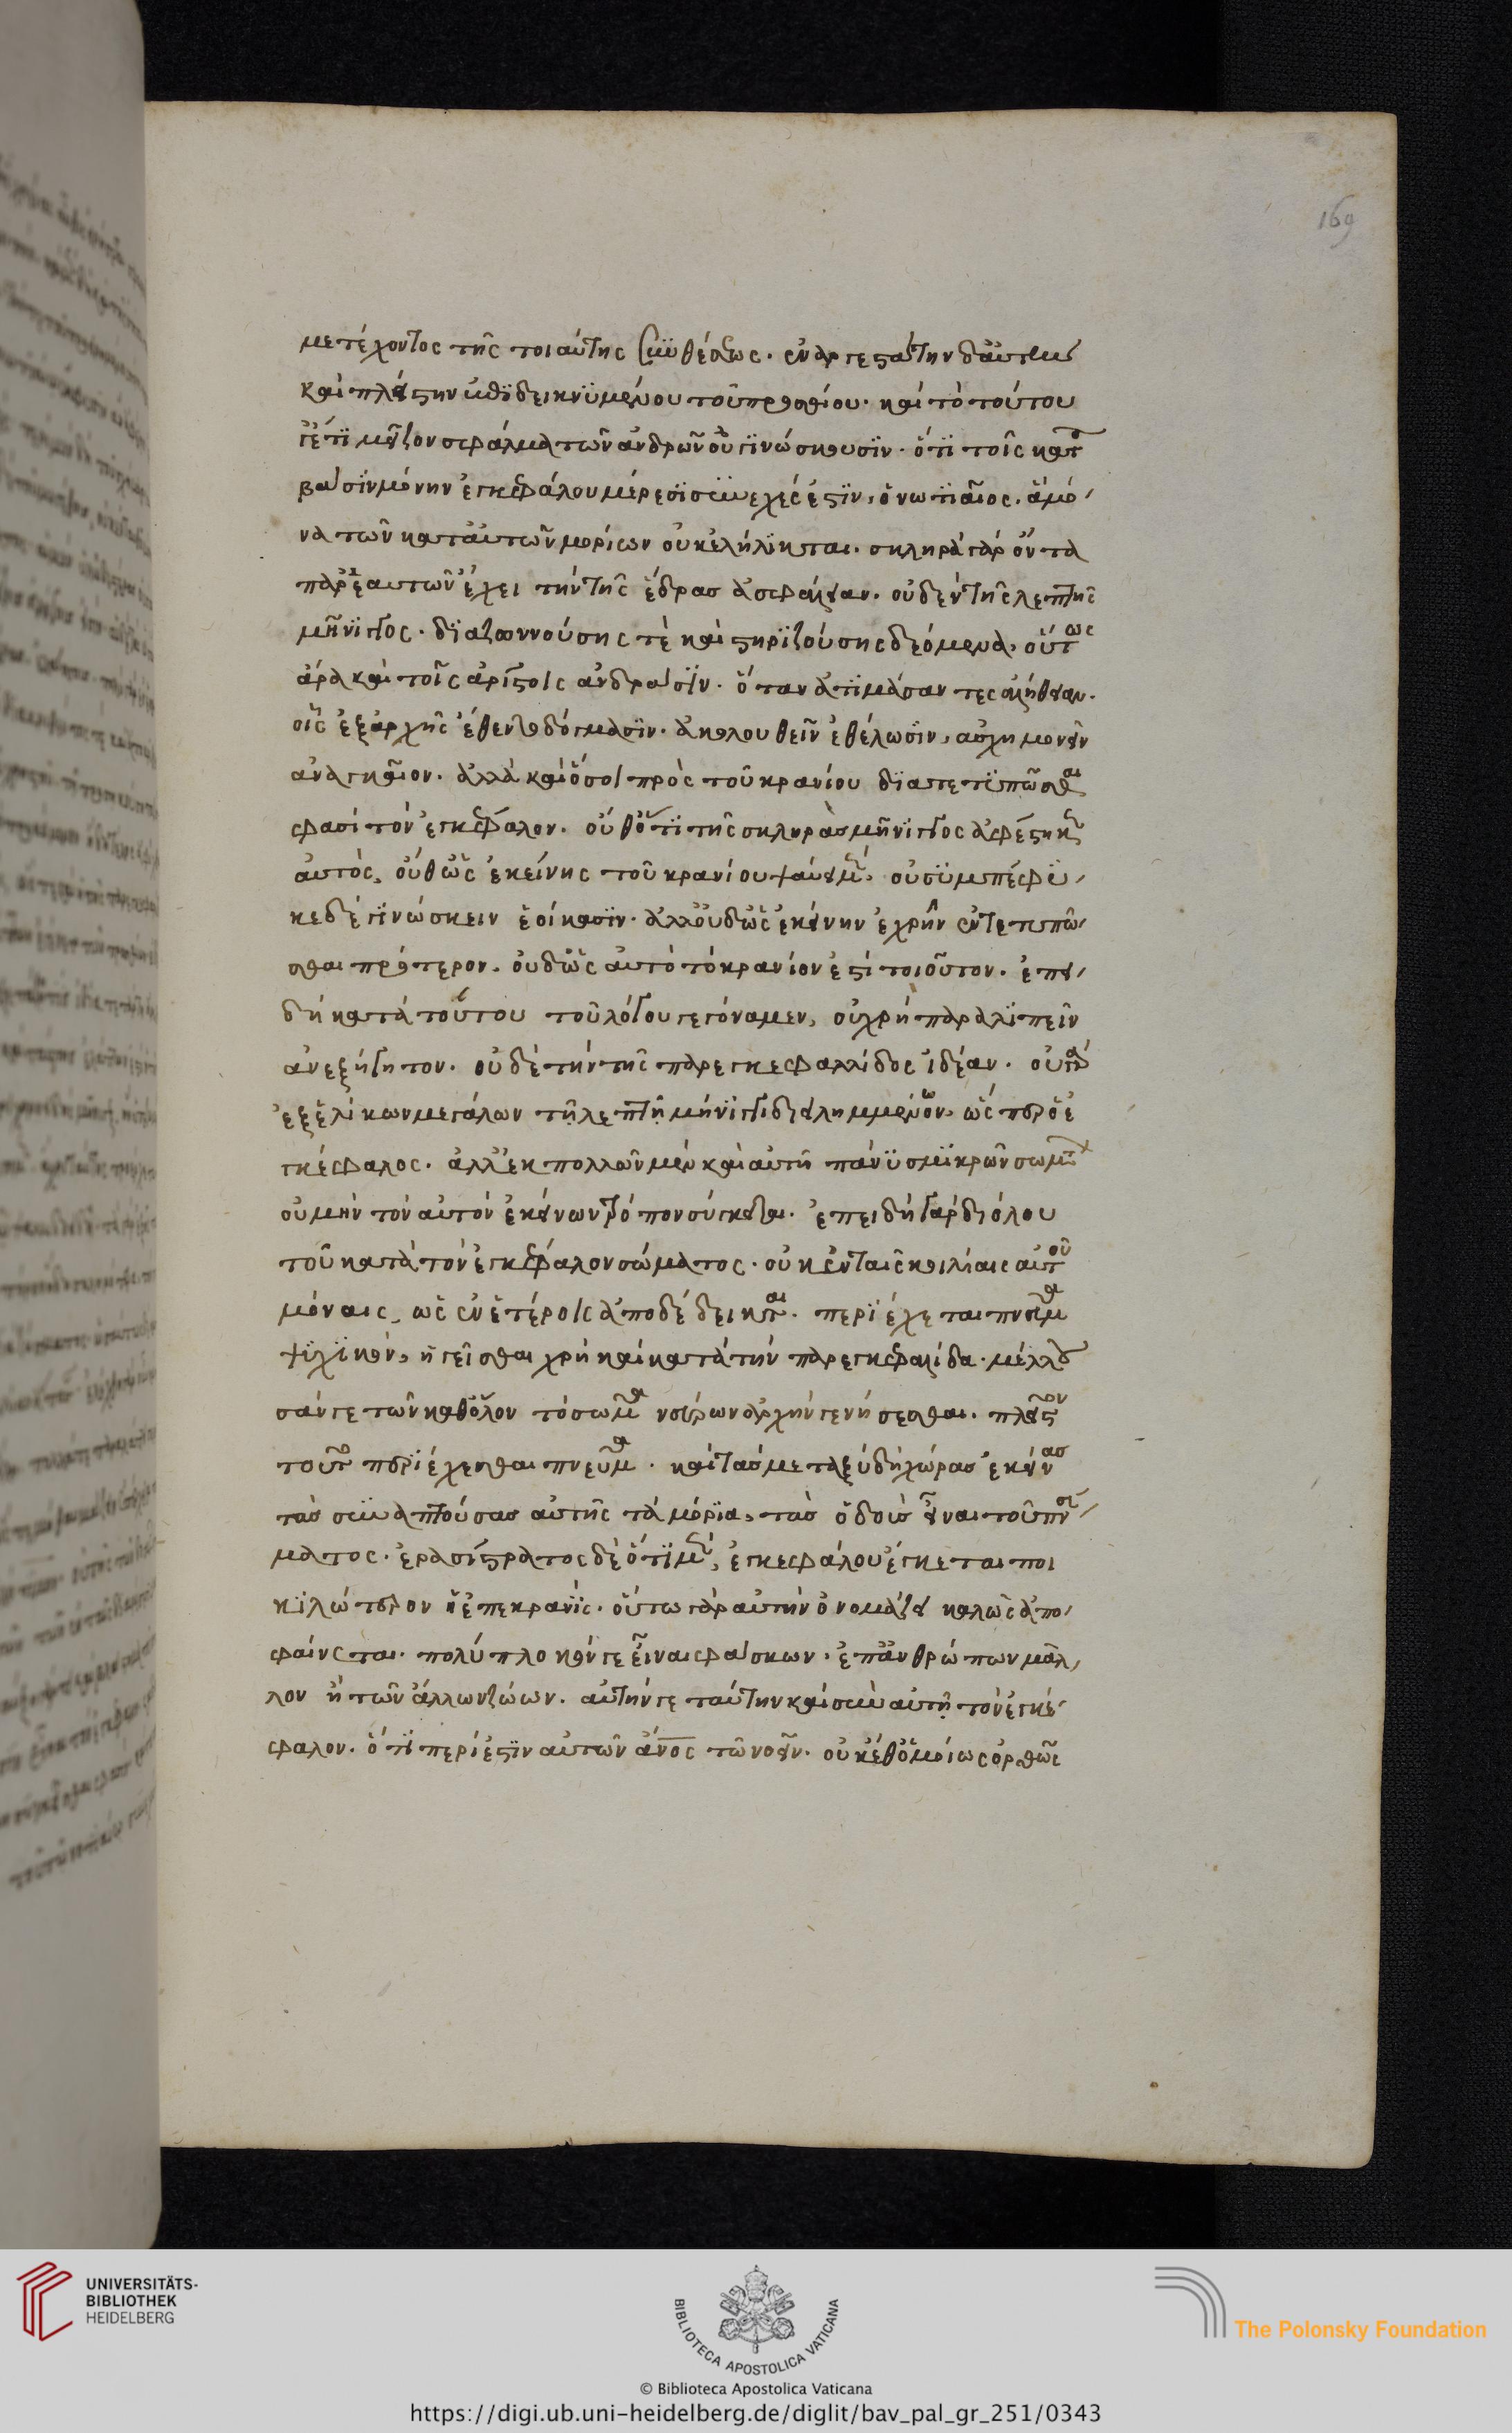 169
μετέχοντος τῆς τοιαύτης συνθέσεως. ἐναργεστάτην δ' αὐτὴν
καὶ πλείστην ἐπιδεικνυμένου τοῦ προσθίου. καὶ τὸ τούτου
γ' ἔτι μεῖζον σφάλμα τῶν ἀνδρῶν οὐ γινώσκουσιν. ὅτι τοῖς κατὰ
βάσιν μόνην ἐγκεφάλου μέρεσι συνεχές ἐστιν, ὁ νωτιαῖος. ἃ μό-
να τῶν κατ' αὐτῶν μορίων οὐκ ἐλήλικται. σκληρὰ γὰρ ὄντα
παρ' ἑαυτῶν ἔχει τὴν τῆς ἕδρας ἀσφάλειαν. οὐδὲν τῆς λεπτῆς
μήνιγγος. διαζωννούσης τὲ καὶ στηριζούσης δεόμενα. οὕτως
ἄρα καὶ τοῖς ἀρίστοις ἀνδράσιν. ὅταν ἀτιμάσαντες ἀλήθειαν.
οἷς ἐξαρχῆς ἔθεντο δόγμασιν. ἀκολουθεῖν ἐθέλωσιν, ἀσχημονεῖν
ἀναγκαῖον. ἀλλὰ καὶ ὅσοι πρὸς τοῦ κρανίου διατετυπῶσθαι
φασὶ τὸν ἐγκέφαλον. οὔθ' ὅτι τῆς σκληρᾶς μήνιγγος ἀφέστηκεν
αὐτὸς, οὔθ' ὡς ἐκείνης τοῦ κρανίου ψαύει μὲν, οὐ συμπέφυ-
κε δὲ γινώσκειν ἐοίκασιν. ἀλλ' οὐδ' ὡς ἐκείνην ἐχρῆν ἐντετυπῶ-
σθαι πρότερον. οὐδ' ὡς αὐτὸ τὸ κρανίον ἐστὶ τοιοῦτον. ἐπει-
δὴ κατὰ τοῦτου τοῦ λόγου γεγόναμεν, οὐ χρὴ παραλιπεῖν
ἀνεξήγητον. οὐδὲ τὴν τῆς παρεγκεφαλλίδος ἰδέαν. οὐ γὰρ
ἐξ ἑλίκων μεγάλων τῇ λεπτῇ μήνιγγι διειλημμένων, ὥσπερ ὁ ἐ
γκέφαλος. ἀλλ' ἐκ πολλῶν μὲν καὶ αὐτὴ πάνυ σμικρῶν σωμάτων
οὐ μὴν τὸν αὐτὸν ἐκείνων τρόπον σύγκειται. ἐπειδὴ γὰρ δι' ὅλου
τοῦ κατὰ τὸν ἐγκέφαλον σώματος. οὐκ ἐν ταῖς κοιλίαις αὐτοῦ
μόναις, ὡς ἐν ἑτέροις ἀποδέδεικται. περιέχεται πνεῦμα
ψυχικὸν, ἡγεῖσθαι χρὴ καὶ κατὰ τὴν παρεγκεφαλίδα. μέλλου
σάν γε τῶν καθόλον τὸ σῶμα νεύρων ἀρχὴν γενήσεσθαι. πλεῖστον
τοῦτο περιέχεσθαι πνεῦμα. καὶ τὰς μεταξὺ δὴ χώρας ἐκείνας
τὰς συναπτούσας αὐτῆς τὰ μόρια, τὰς ὁδοὺς εἶναι τοῦ πνεύ-
ματος. ἐρασίστρατος δὲ ὅτι μὲν, ἐγκεφάλου ἔγκειται ποι
κιλώτερον ἡ ἐπεκρανίς. οὕτω γὰρ αὐτὴν ὀνομάζει καλῶς ἀπο-
φαίνεται. πολύπλοκόν γε εἶναι φάσκων. ἐπ' ἀνθρώπων μᾶλ-
λον ἢ τῶν ἄλλων ζώων. αὐτήν γε ταύτην καὶ σὺν αὐτῇ τὸν ἐγκέ-
φαλον. ὅτι περίεστιν αὐτῶν ἄνος τῶ νοεῖν. οὐκέθ' ὁμοίως ὀρθῶς
UNIVERSITÄTS-
BIBLIOTHEK
HEIDELBERG
BIBLIOTECA APOSTOLICA VATICANA
The Polonsky Foundation
© Biblioteca Apostolica Vaticana
https://digi.ub.uni-heidelberg.de/diglit/bav_pal_gr_251/0343